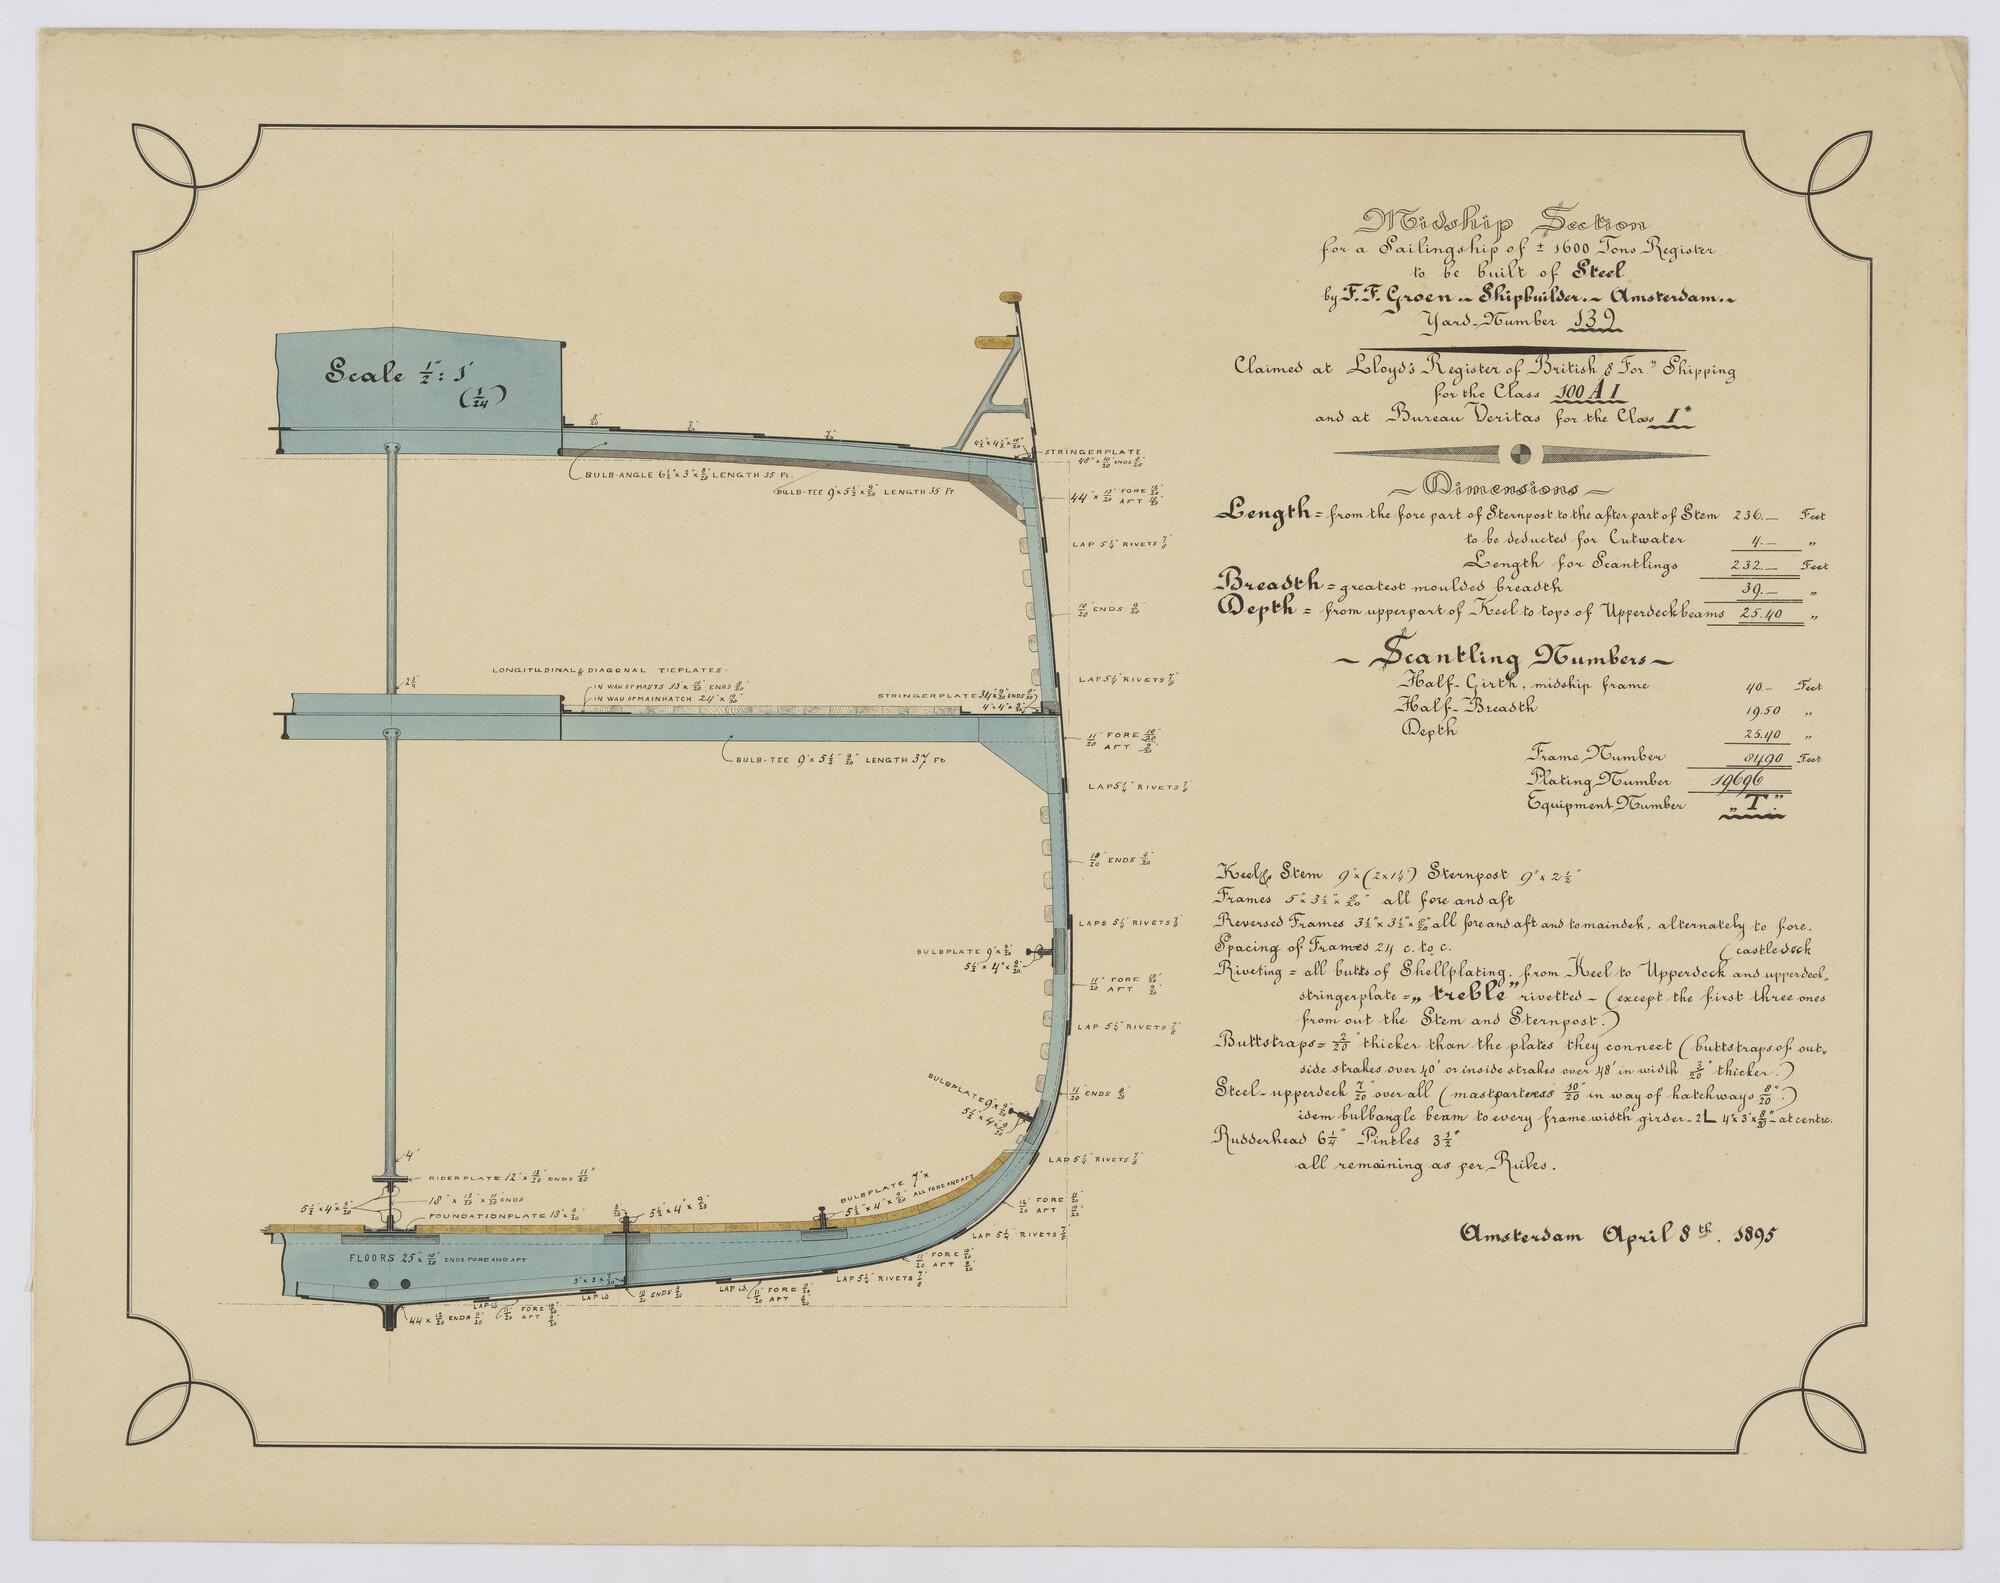 Midship Section
for a Sailingship of ± 1600 Tons Register
to be built of Steel
by F.F. Groen - Shipbuilder - Amsterdam.
Yard-Number 139
Claimed at Lloyd's Register of British & For.n Shipping
for the Class 100 A 1
and at Bureau Veritas for the Class I*
~ Dimensions ~
Length = from the fore part of Sternpost to the after part of Stem 236.— Feet
to be deducted for Cutwater 4.— „
Length for Scantlings 232.— Feet
Breadth = greatest moulded breadth 39.— „
Depth = from upperpart of Keel to tops of Upperdeckbeams 25.40 „
~ Scantling Numbers ~
Half-Girth, midship frame 40.— Feet
Half-Breadth 19.50 „
Depth 25.40 „
Frame Number 8490 Feet
Plating Number 19696
Equipment Number „T"
Keel & Stem 9" × (2×1¼) Sternpost 9" × 2½"
Frames 5" × 3½" × 8/20" all fore and aft
Reversed Frames 3½" × 3½" × 8/20" all fore and aft and to maindek, alternately to fore-
(castledeck
Spacing of Frames 24 c. to c.
Riveting = all butts of Shellplating, from Keel to Upperdeck and upperdeck-
stringerplate = „treble" rivetted - (except the first three ones
from out the Stem and Sternpost.)
Buttstraps = 2/20" thicker than the plates they connect (buttstraps of out-
side strakes over 40' or inside strakes over 48' in width 3/20" thicker.)
Steel-upperdeck 7/20" over all (mastpartners 10/20" in way of hatchways 8/20".)
idem bulbangle beam to every frame width girder - 2L 4" × 3" × 8/20" - at centre.
Rudderhead 6¼" Pintles 3½"
all remaining as per Rules.
Amsterdam April 8th. 1895
Scale ½" : 1'
(1/24)
BULB-ANGLE 6½" × 3" × 8/20" LENGTH 35 Ft.
BULB-TEE 9" × 5½" × 9/20" LENGTH 35 Ft
STRINGERPLATE
48" × 10/20 ENDS 8/20
FORE
AFT
LAP 5¼" RIVETS 7/8
10/20 ENDS 9/20
LAP 5¼" RIVETS 7/8
LONGITUDINAL & DIAGONAL TIEPLATES:
IN WAY OF MASTS 13" × 10/20 ENDS 8/20
IN WAY OF MAINHATCH 24" × 10/20
STRINGERPLATE
2¾"
11/20 FORE 10/20
AFT 9/20
BULB-TEE 9" × 5½" 9/20" LENGTH 37 Ft
LAP 5¼" RIVETS 7/8
10/20 ENDS 9/20
LAPS 5¼" RIVETS 7/8
BULBPLATE 9" × 9/20
5½" × 4" × 9/20
11/20 FORE 10/20
AFT 9/20
LAP 5¼" RIVETS 7/8
BULBPLATE 9" × 9/20
5½" × 4" × 9/20
11/20 ENDS 9/20
LAP 5¼" RIVETS 7/8
4"
RIDERPLATE 12" × 12/20 ENDS 11/20
18" × 13/20 × 11/20 ENDS
5½" × 4" × 9/20
FOUNDATIONPLATE 18" × 9/20
5½" × 4" × 9/20
BULBPLATE 7" ×
5½" × 4" × 9/20 ALL FORE AND AFT
12/20 FORE 11/20
AFT 10/20
LAP 5¼" RIVETS 7/8
FLOORS 25" × 10/20 ENDS FORE AND AFT
3" × 3" × 7/20
11/20 FORE
AFT
LAP 5¼" RIVETS 7/8
LAP ID.
11/20 FORE
AFT
10/20 ENDS 9/20
LAP ID
LAP ID.
11/20 FORE
AFT
44 × 12/20 ENDS 11/20